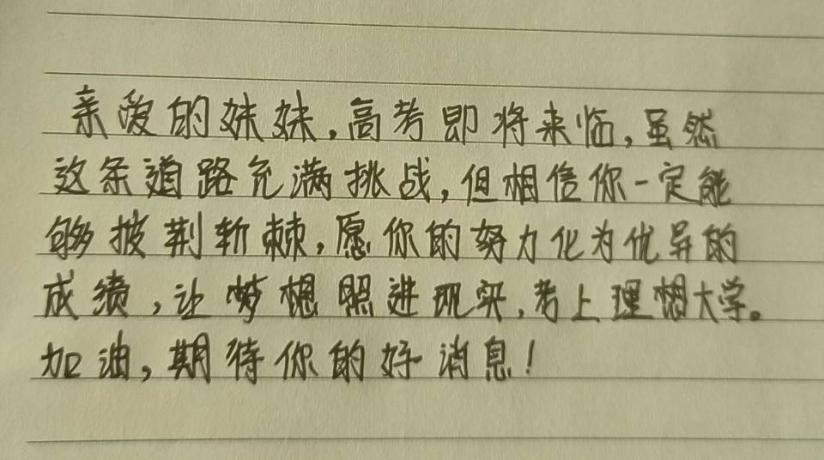 亲爱的妹妹,高考即将来临,虽然
这条道路充满挑战,但相信你一定能
够披荆斩棘,愿你的努力化为优异的
成绩,让梦想照进现实,考上理想大学。
加油,期待你的好消息!